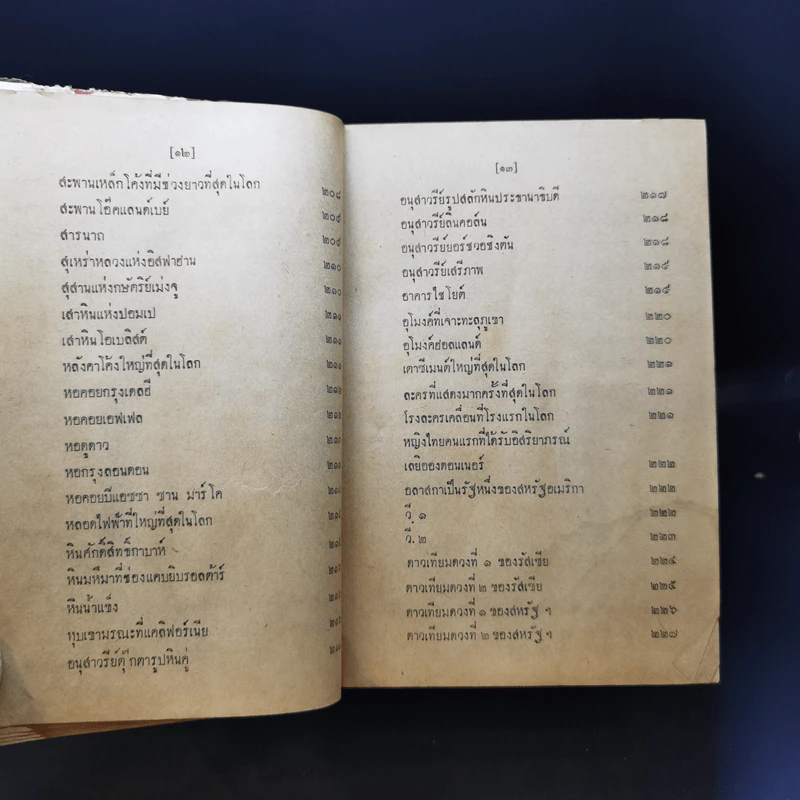 [๑๒]
สะพานเหล็กโค้งที่มีช่วงยาวที่สุดในโลก ๒๐๘
สะพานโอ๊คแลนด์เบย์ ๒๐๙
สารนาถ ๒๐๙
สุเหร่าหลวงแห่งอิสฟาฮาน ๒๑๐
สุสานแห่งกษัตริย์เม่งจู ๒๑๐
เสาหินแห่งปอมเป ๒๑๑
เสาหินโอเบลิสต์ ๒๑๑
หลังคาโค้งใหญ่ที่สุดในโลก
หอคอยกรุงเดลฮี
หอคอยเอฟเฟล
หอดูดาว
หอกรุงลอนดอน
หอคอยบีแอซซา ซาน มาร์โค
หลอดไฟฟ้าที่ใหญ่ที่สุดในโลก
หินศักดิ์สิทธิ์กาบาห์
หินมหึมาที่ช่องแคบยิบรอลต้าร์
หินน้ำแข็ง
หุบเขามรณะที่แคลิฟอร์เนีย
อนุสาวรีย์ตุ๊กตารูปหินคู่
[๑๓]
อนุสาวรีย์รูปสลักหินประธานาธิบดี ๒๑๗
อนุสาวรีย์ลินคอล์น ๒๑๘
อนุสาวรีย์ยอร์ชวอชิงตัน ๒๑๘
อนุสาวรีย์เสรีภาพ ๒๑๙
อาคารไชโยต์ ๒๑๙
อุโมงค์ที่เจาะทะลุภูเขา ๒๒๐
อุโมงค์ฮอลแลนด์ ๒๒๐
เตาซีเมนต์ใหญ่ที่สุดในโลก ๒๒๑
ละครที่แสดงมากครั้งที่สุดในโลก ๒๒๑
โรงละครเคลื่อนที่โรงแรกในโลก ๒๒๑
หญิงไทยคนแรกที่ได้รับอิสริยาภรณ์
เลยิอองดอนเนอร์ ๒๒๒
อลาสกาเป็นรัฐหนึ่งของสหรัฐอเมริกา ๒๒๒
วี. ๑ ๒๒๒
วี. ๒ ๒๒๓
ดาวเทียมดวงที่ ๑ ของรัสเซีย ๒๒๔
ดาวเทียมดวงที่ ๒ ของรัสเซีย ๒๒๕
ดาวเทียมดวงที่ ๑ ของสหรัฐ ฯ ๒๒๖
ดาวเทียมดวงที่ ๒ ของสหรัฐ ฯ ๒๒๗